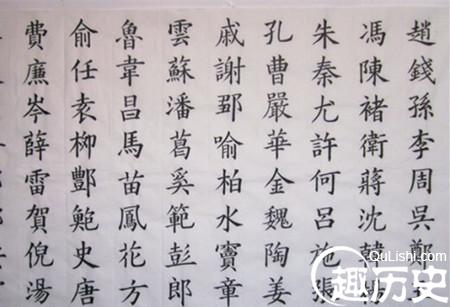 趙錢孫李周吳鄭王
馮陳褚衛蔣沈韓楊
朱秦尤許何呂施張
孔曹嚴華金魏陶姜
戚謝鄒喻柏水竇章
雲蘇潘葛奚範彭郎
魯韋昌馬苗鳳花方
俞任袁柳酆鮑史唐
費廉岑薛雷賀倪湯
QuLishi.com
趣历史